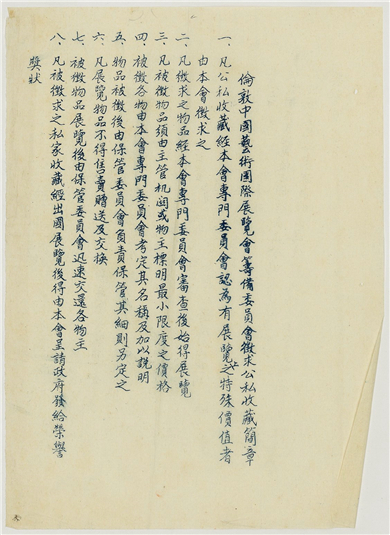 倫敦中國藝術國際展覽會籌備委員會徵求公私收藏簡章
一、凡公私收藏經本會專門委員會認為有展覽之特殊價值者
由本會徵求之
二、凡徵求之物品經本會專門委員會審查後始得展覽
三、凡被徵物品須由主管机関或物主標明最小限度之價格
四、被徵各物由本會專門委員會考定其名稱及加以說明
五、物品被徵後由保管委員會負責保管其細則另定之
六、凡展覽物品不得售賣贈送及交換
七、被徵物品展覽後由保管委員會迅速交還各物主
八、凡被徵求之私家收藏經出國展覽後得由本會呈請政府發給榮譽
獎狀